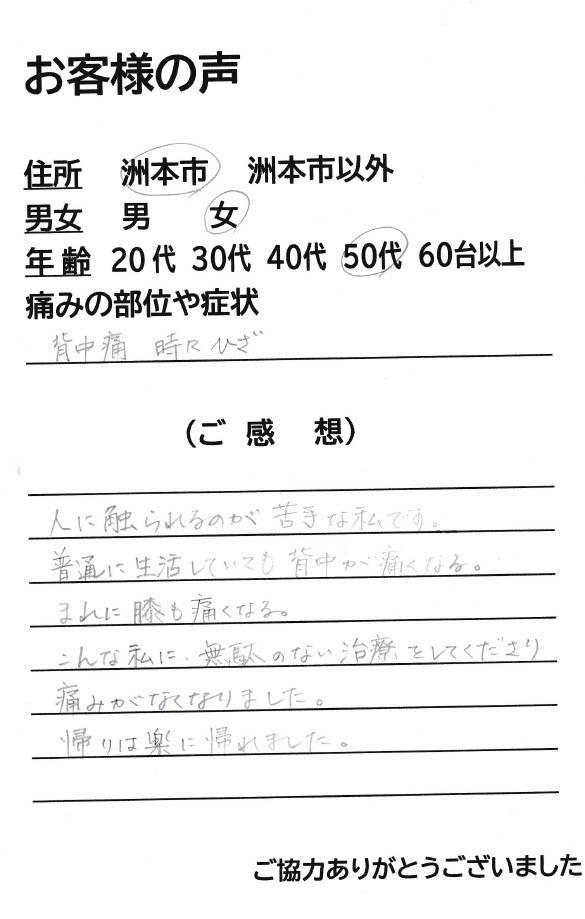 お客様の声
住所 洲本市 洲本市以外
男女 男 女
年齢 20代 30代 40代 50代 60台以上
痛みの部位や症状
背中痛 時々ひざ
（ご感想）
人に触られるのが苦手な私です。
普通に生活していても背中が痛くなる。
まれに膝も痛くなる。
こんな私に、無駄のない治療をしてくださり
痛みがなくなりました。
帰りは楽に帰れました。
ご協力ありがとうございました